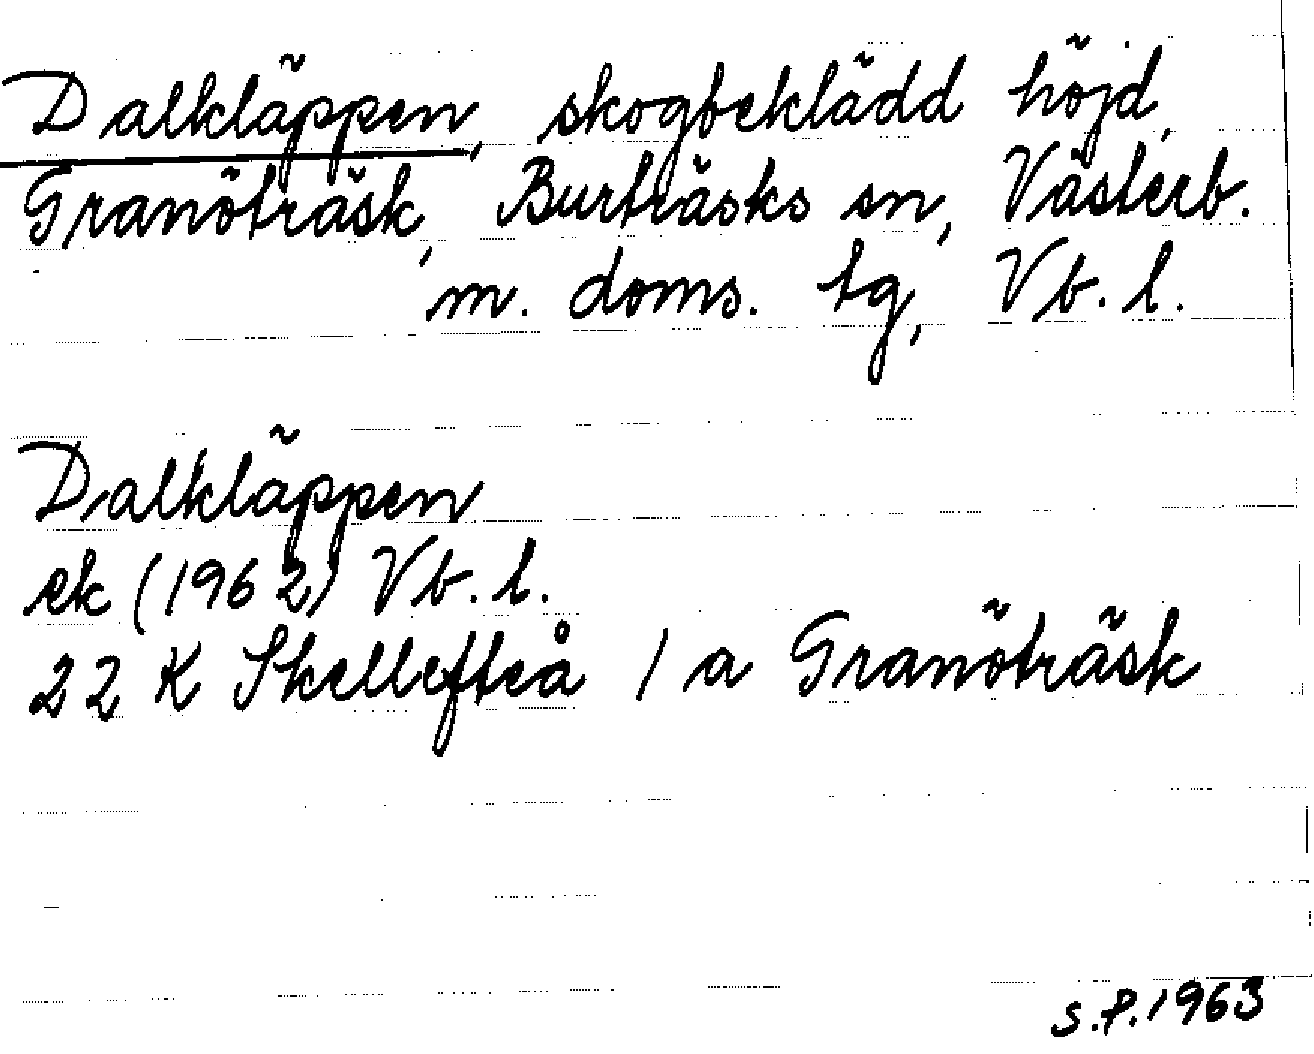 Dalkläppen, skogbeklädd höjd,
Granöträsk, Burträsks sn, Västerb.
m. doms. tg, Vb. l.
Dalkläppen
ek (1962) Vb. l.
22 K Skellefteå / a Granöträsk
S.P. 1963